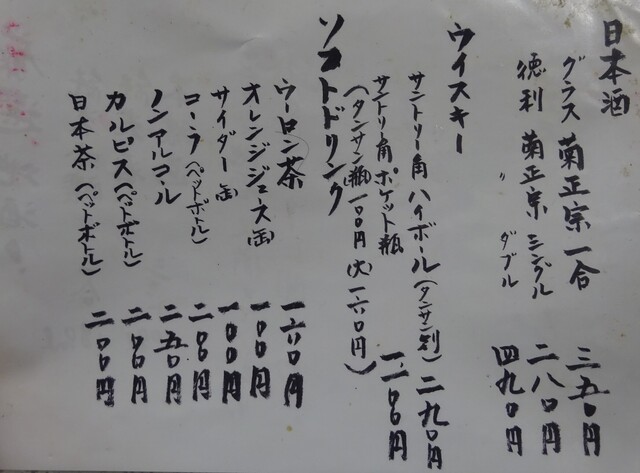 日本酒
グラス 菊正宗 一合 三五〇円
徳利 菊正宗 シングル 二八〇円
〃 ダブル 四九〇円
ウイスキー
サントリー角 ハイボール(タンサン割) 二九〇円
サントリー角 ポケット瓶 一、一〇〇円
(タンサン瓶一〇〇円 (大)一六〇円)
ソフトドリンク
ウーロン茶 一六〇円
オレンジジュース(缶) 一〇〇円
サイダー(缶) 一〇〇円
コーラ(ペットボトル) 二〇〇円
ノンアルコール 二五〇円
カルピス(ペットボトル) 二〇〇円
日本茶(ペットボトル) 二〇〇円